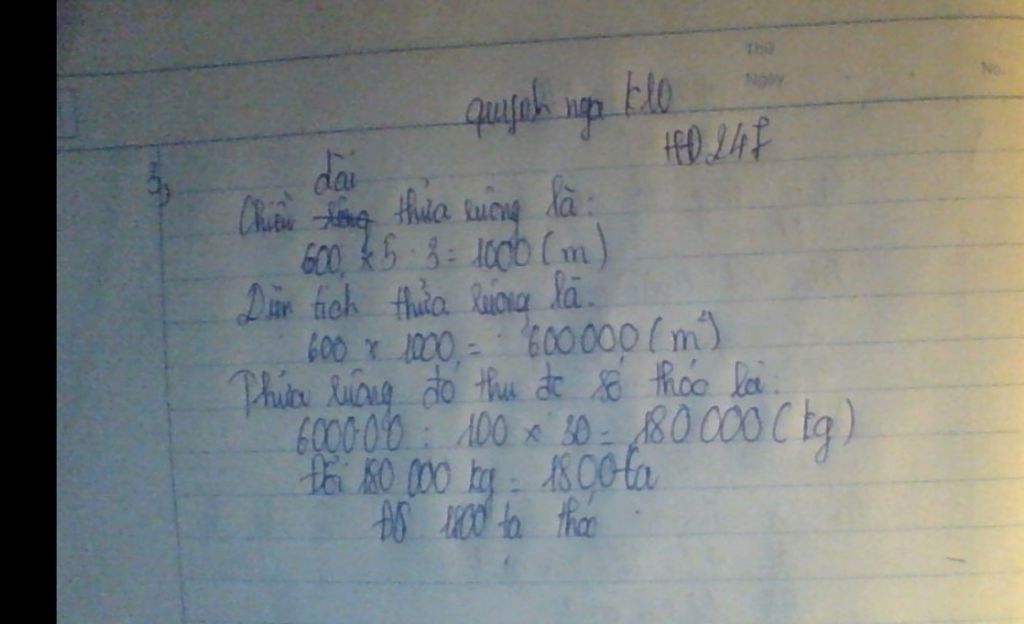 Thứ
Ngày
No.
quỳnh nga K10
HD247
3,
dài
Chiều thửa ruộng là:
600 x 5 : 3 = 1000 (m)
Diện tích thửa ruộng là.
600 x 1000 = 600000 (m²)
Thửa ruộng đó thu đc số thóc là:
600000 : 100 x 30 = 180000 (kg)
Đổi 180 000 kg = 1800 tạ
ĐS 1800 tạ thóc